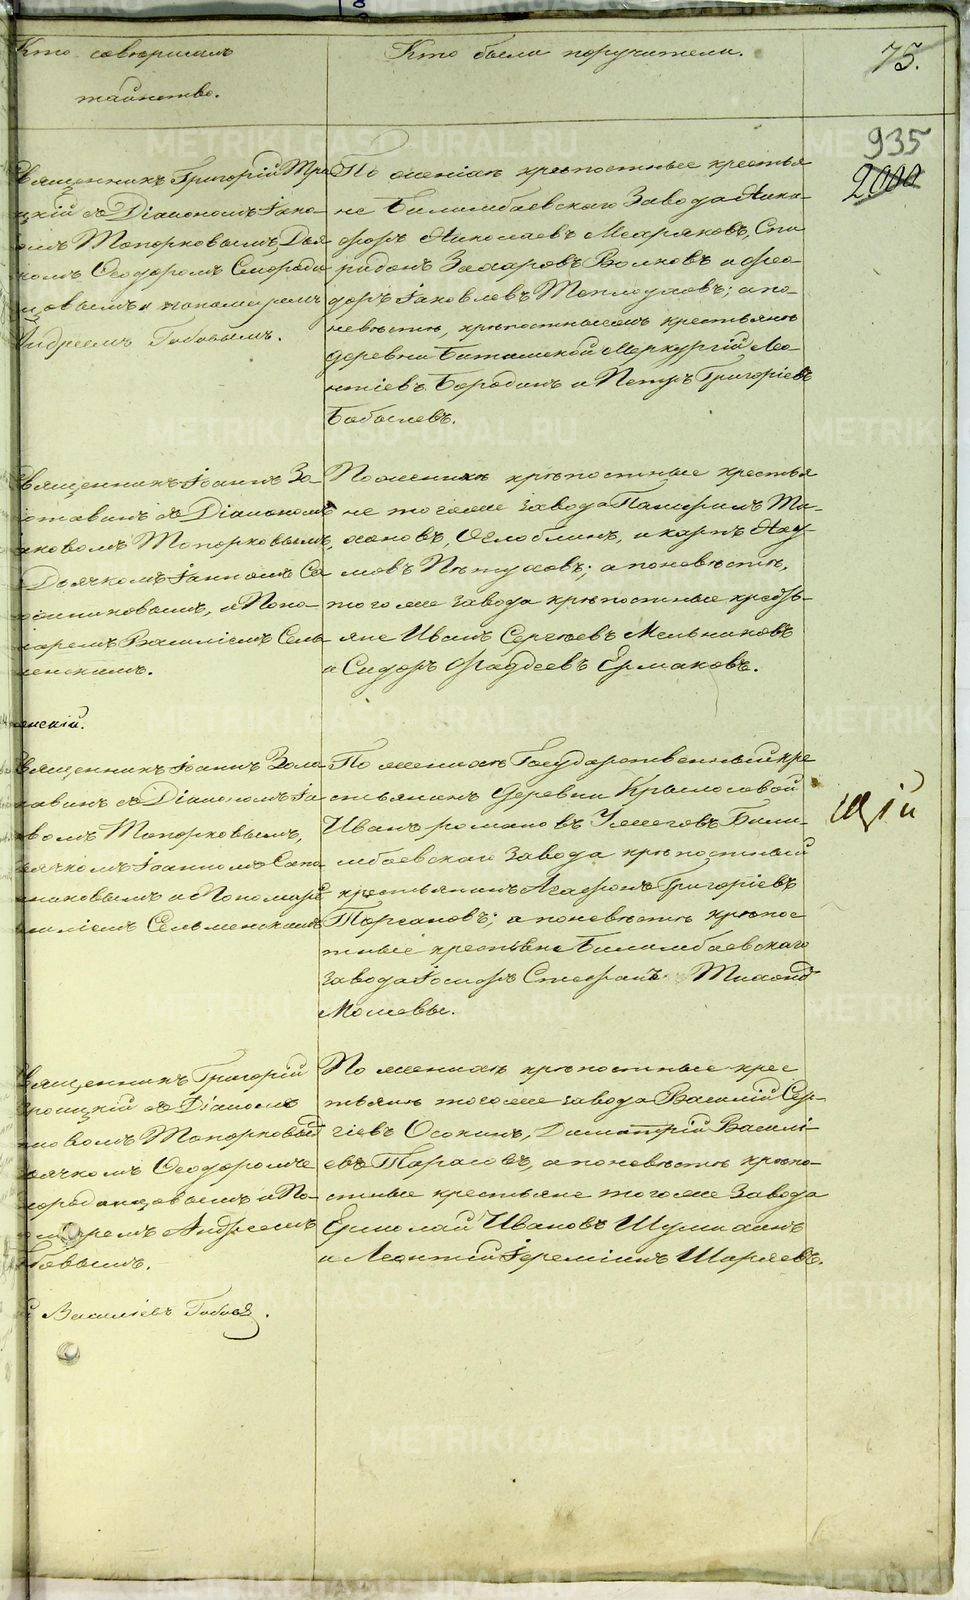 Кто совершалъ
таинство.
Кто были поручители.
75.
935
2000
Священникъ Григорій Трои
цкій съ Діакономъ Іако-
вомъ Топорковымъ, Дья
комъ Ѳеодоромъ
и пономаремъ
Андреемъ Бабовымъ.
По женихѣ крѣпостные крестья
не Билимбаевскаго Завода Ника-
форъ Николаевъ Спи
ридонъ Захаровъ Волковъ и Ѳео-
доръ Іаковлевъ Теплоуховъ; а по
невѣстѣ, крѣпостные крестьяне
деревни Битимской Меркурій Лео-
нтіевъ Бородинъ и Петръ Григоріевъ
Священникъ Іоаннъ Зо-
съ Діакономъ
Іаковомъ Топорковымъ,
Дьячкомъ Іоанномъ Са
и Поно-
маремъ Василіемъ Сель
менскимъ.
По женихѣ крѣпостные крестья
не того же завода Памфилъ Ти-
Оглоблинъ, и Карпъ Нау-
мовъ Пѣтуховъ; а по невѣстѣ,
того же завода крѣпостные кресть-
яне Иванъ Сергѣевъ Мельниковъ
и Сидоръ Фадѣевъ Ермаковъ.
менскій.
Священникъ Іоаннъ
съ Діакономъ Іа
ковомъ Топорковымъ,
Дьячкомъ Іоанномъ Сапо
жниковымъ и Пономаре
Василіемъ Сельменскимъ
По женихѣ Государственный кре
стьянинъ Деревни Крылосовой
Иванъ Романовъ Билим-
мбаевскаго Завода крѣпостный
крестьянинъ Агафонъ Григоріевъ
а по невѣстѣ крѣпос
тные крестьяне Билимбаевскаго
завода Іосифъ Стефанъ Тихонъ
щій
Священникъ Григорій
Троицкій съ Діакономъ
Іаковомъ Топорковым
Дьячкомъ Ѳеодоромъ
и По-
номаремъ Андреемъ
Бабовымъ.
По женихѣ крѣпостные крес
тьяне того же завода Василій Сер-
гіевъ Осокинъ, Димитрій Василі
евъ Тарасовъ, а по невѣстѣ крѣпо-
стные крестьяне того же Завода
Ермолай Ивановъ
и Леонтій Іереміинъ
Василіевъ